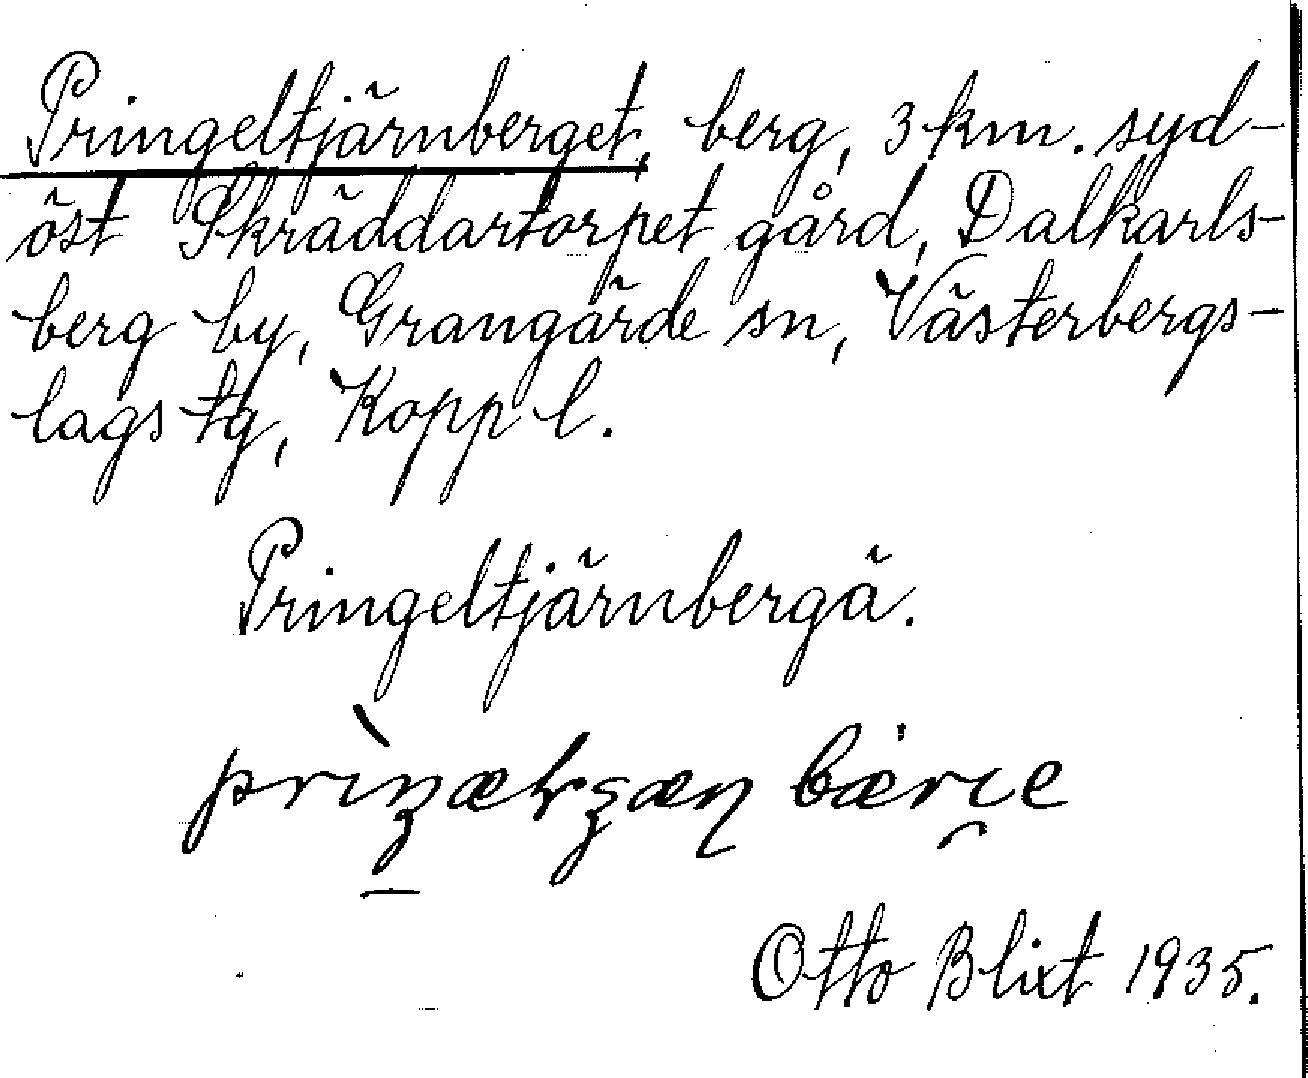 Pringeltjärnberget, berg, 3 km. syd-
öst Skräddartorpet gård, Dalkarls-
berg by, Grangärde sn, Västerbergs-
lags tg, Kopp l.
Pringeltjärnbergä.
Otto Blixt 1935.